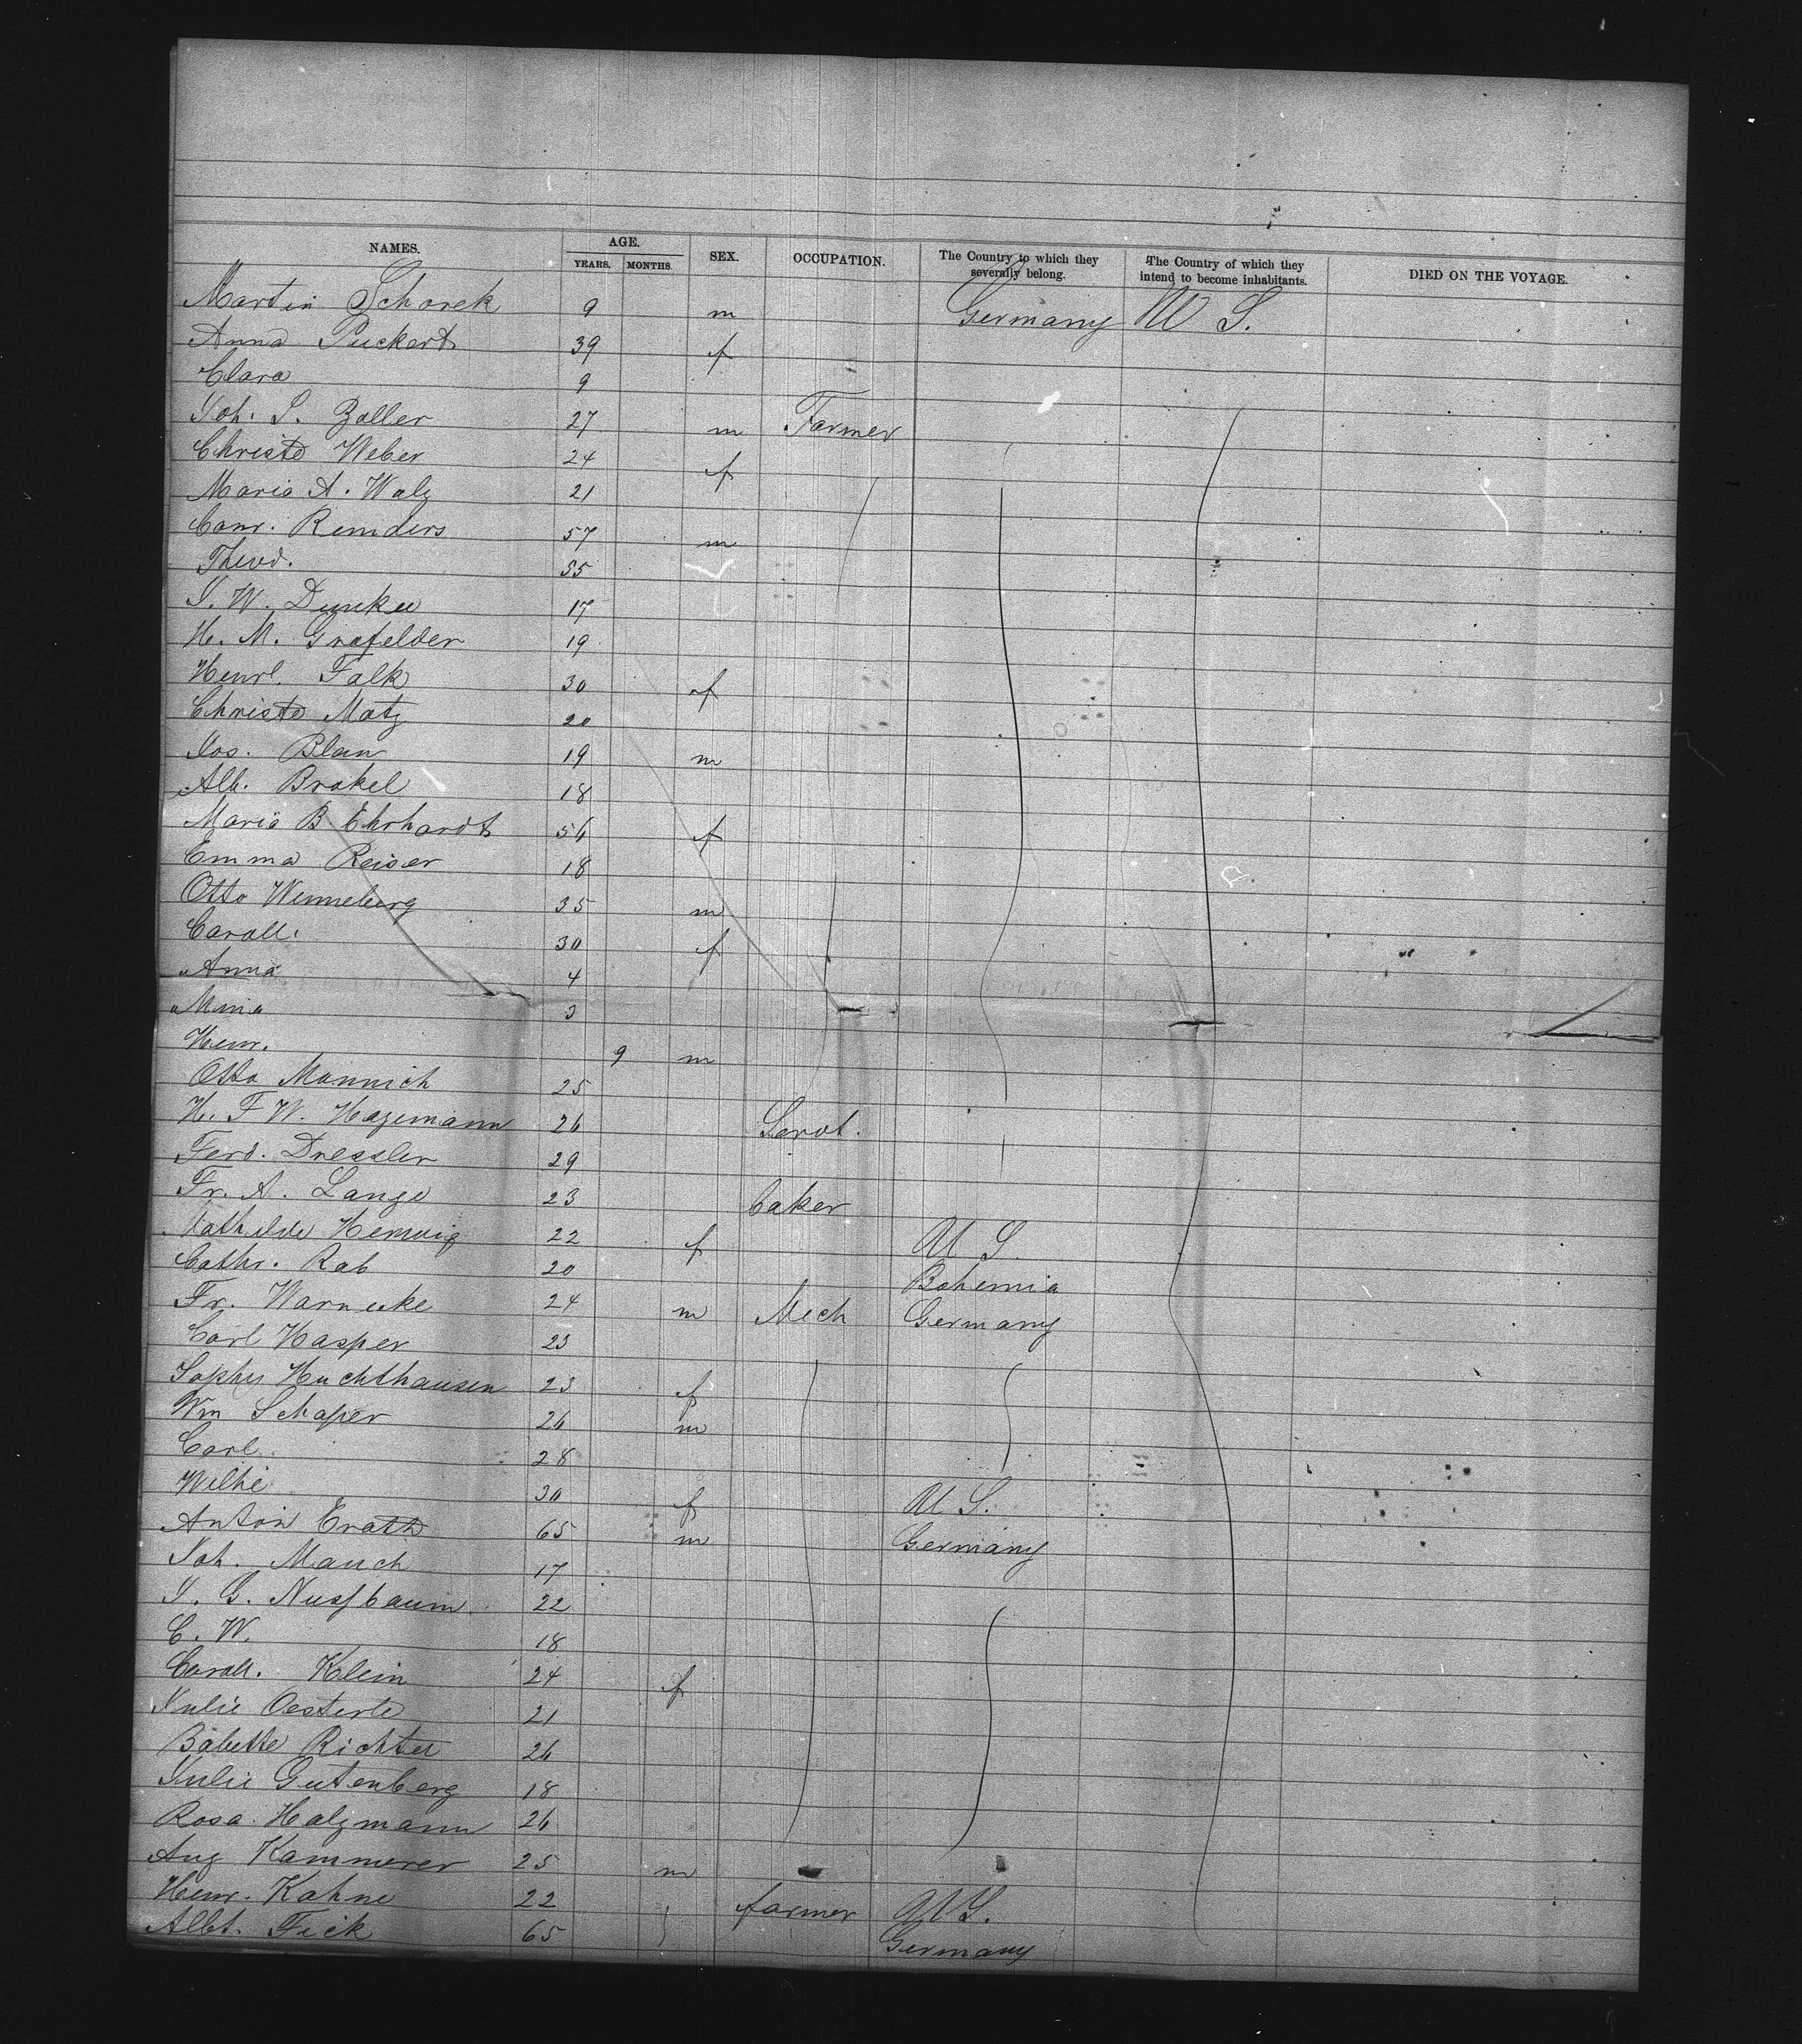 NAMES. AGE. SEX. OCCUPATION. The Country to which they severally belong. The Country of which they intend to become inhabitants. DIED ON THE VOYAGE.
YEARS. MONTHS.
Martin Schorek 9 m Germany U S.
Anna Puckert 39 f
Clara 9
Joh. S. Zoller 27 m Farmer
Christe Weber 24 f
Maria A. Walz 21
Conr. Remders 57 m
Theod. 55
J. W. Dunker 17
H. M. Grafelder 19
Henrl. Falk 30 f
Christe Motz 20
Jos. Blau 19 m
Alb. Brokel 18
Maria B. Ehrhardt 56 f
Emma Reiser 18
Otto Wenneberg 35 m
Caroll. 30 f
Anna 4
Mina 3
Henr. 9 m
Otto Monnich 25
H. F W. Hagemann 26 Servt.
Ferd. Dressler 29
Fr. A. Lange 23 baker
Mathilde Herwig 22 f U S.
Cathr. Rab 20 Bohemia
Fr. Warnecke 24 m Mech Germany
Carl Kasper 23
Sophie Huchthausen 23 f
Wm Schaper 26 m
Carl 28
Wilhe 30 f U S.
Anton Erath 65 m Germany
Joh. Mauch 17
J. G. Nussbaum 22
C. W. 18
Caroll. Klein 24 f
Julie Oesterle 21
Babette Richter 26
Julie Gutenberg 18
Rosa Holzmann 26
Aug Kammerer 25 m
Henr. Kohne 22 farmer U S.
Albt. Fick 65 Germany